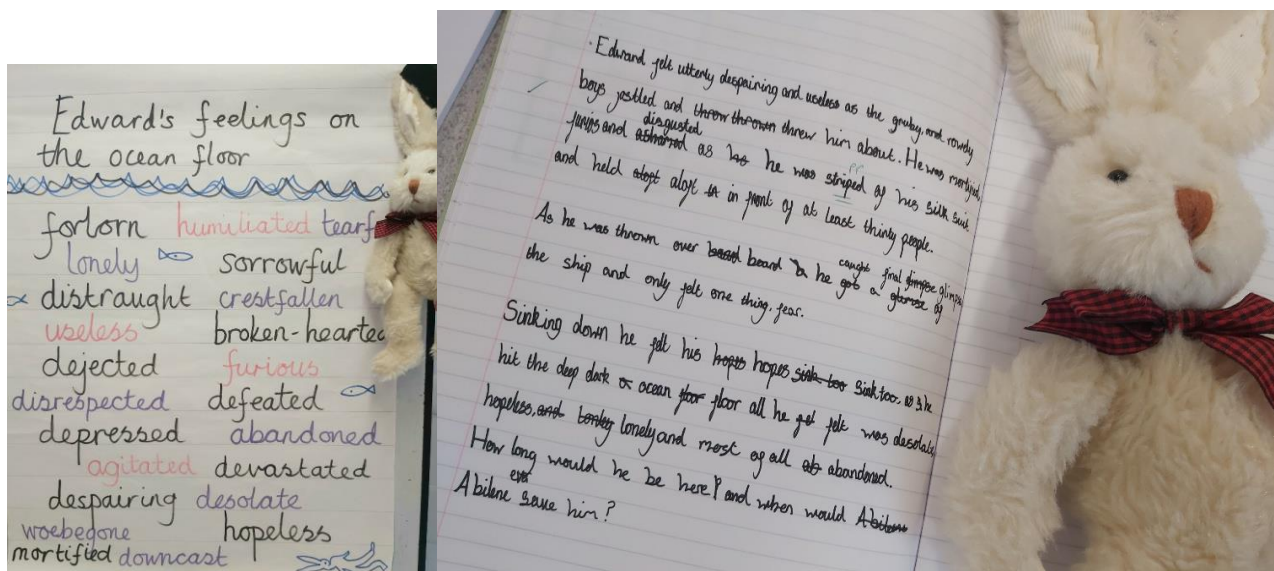 Edward's feelings on
the ocean floor
forlorn humiliated tearf
lonely sorrowful
distraught crestfallen
useless broken-hearted
dejected furious
disrespected defeated
depressed abandoned
agitated devastated
despairing desolate
woebegone hopeless
mortified downcast
Edward felt utterly despairing and useless as the grubby, and rowdy
boys jostled and throw thrown threw him about. He was mortified,
disgusted
furious and ashamed as he was striped of his silk suit
and held aloft in in front of at least thirty people.
As he was thrown over board he caught final glimpse
got a glimse of
the ship and only felt one thing, fear.
Sinking down he felt his hopes hopes sink too sink too. as he
hit the deep dark ocean floor floor all he felt was desolate,
hopeless, and lonley lonely and most of all abandoned.
How long would he be here? and when would Abilene
ever
Abilene save him?